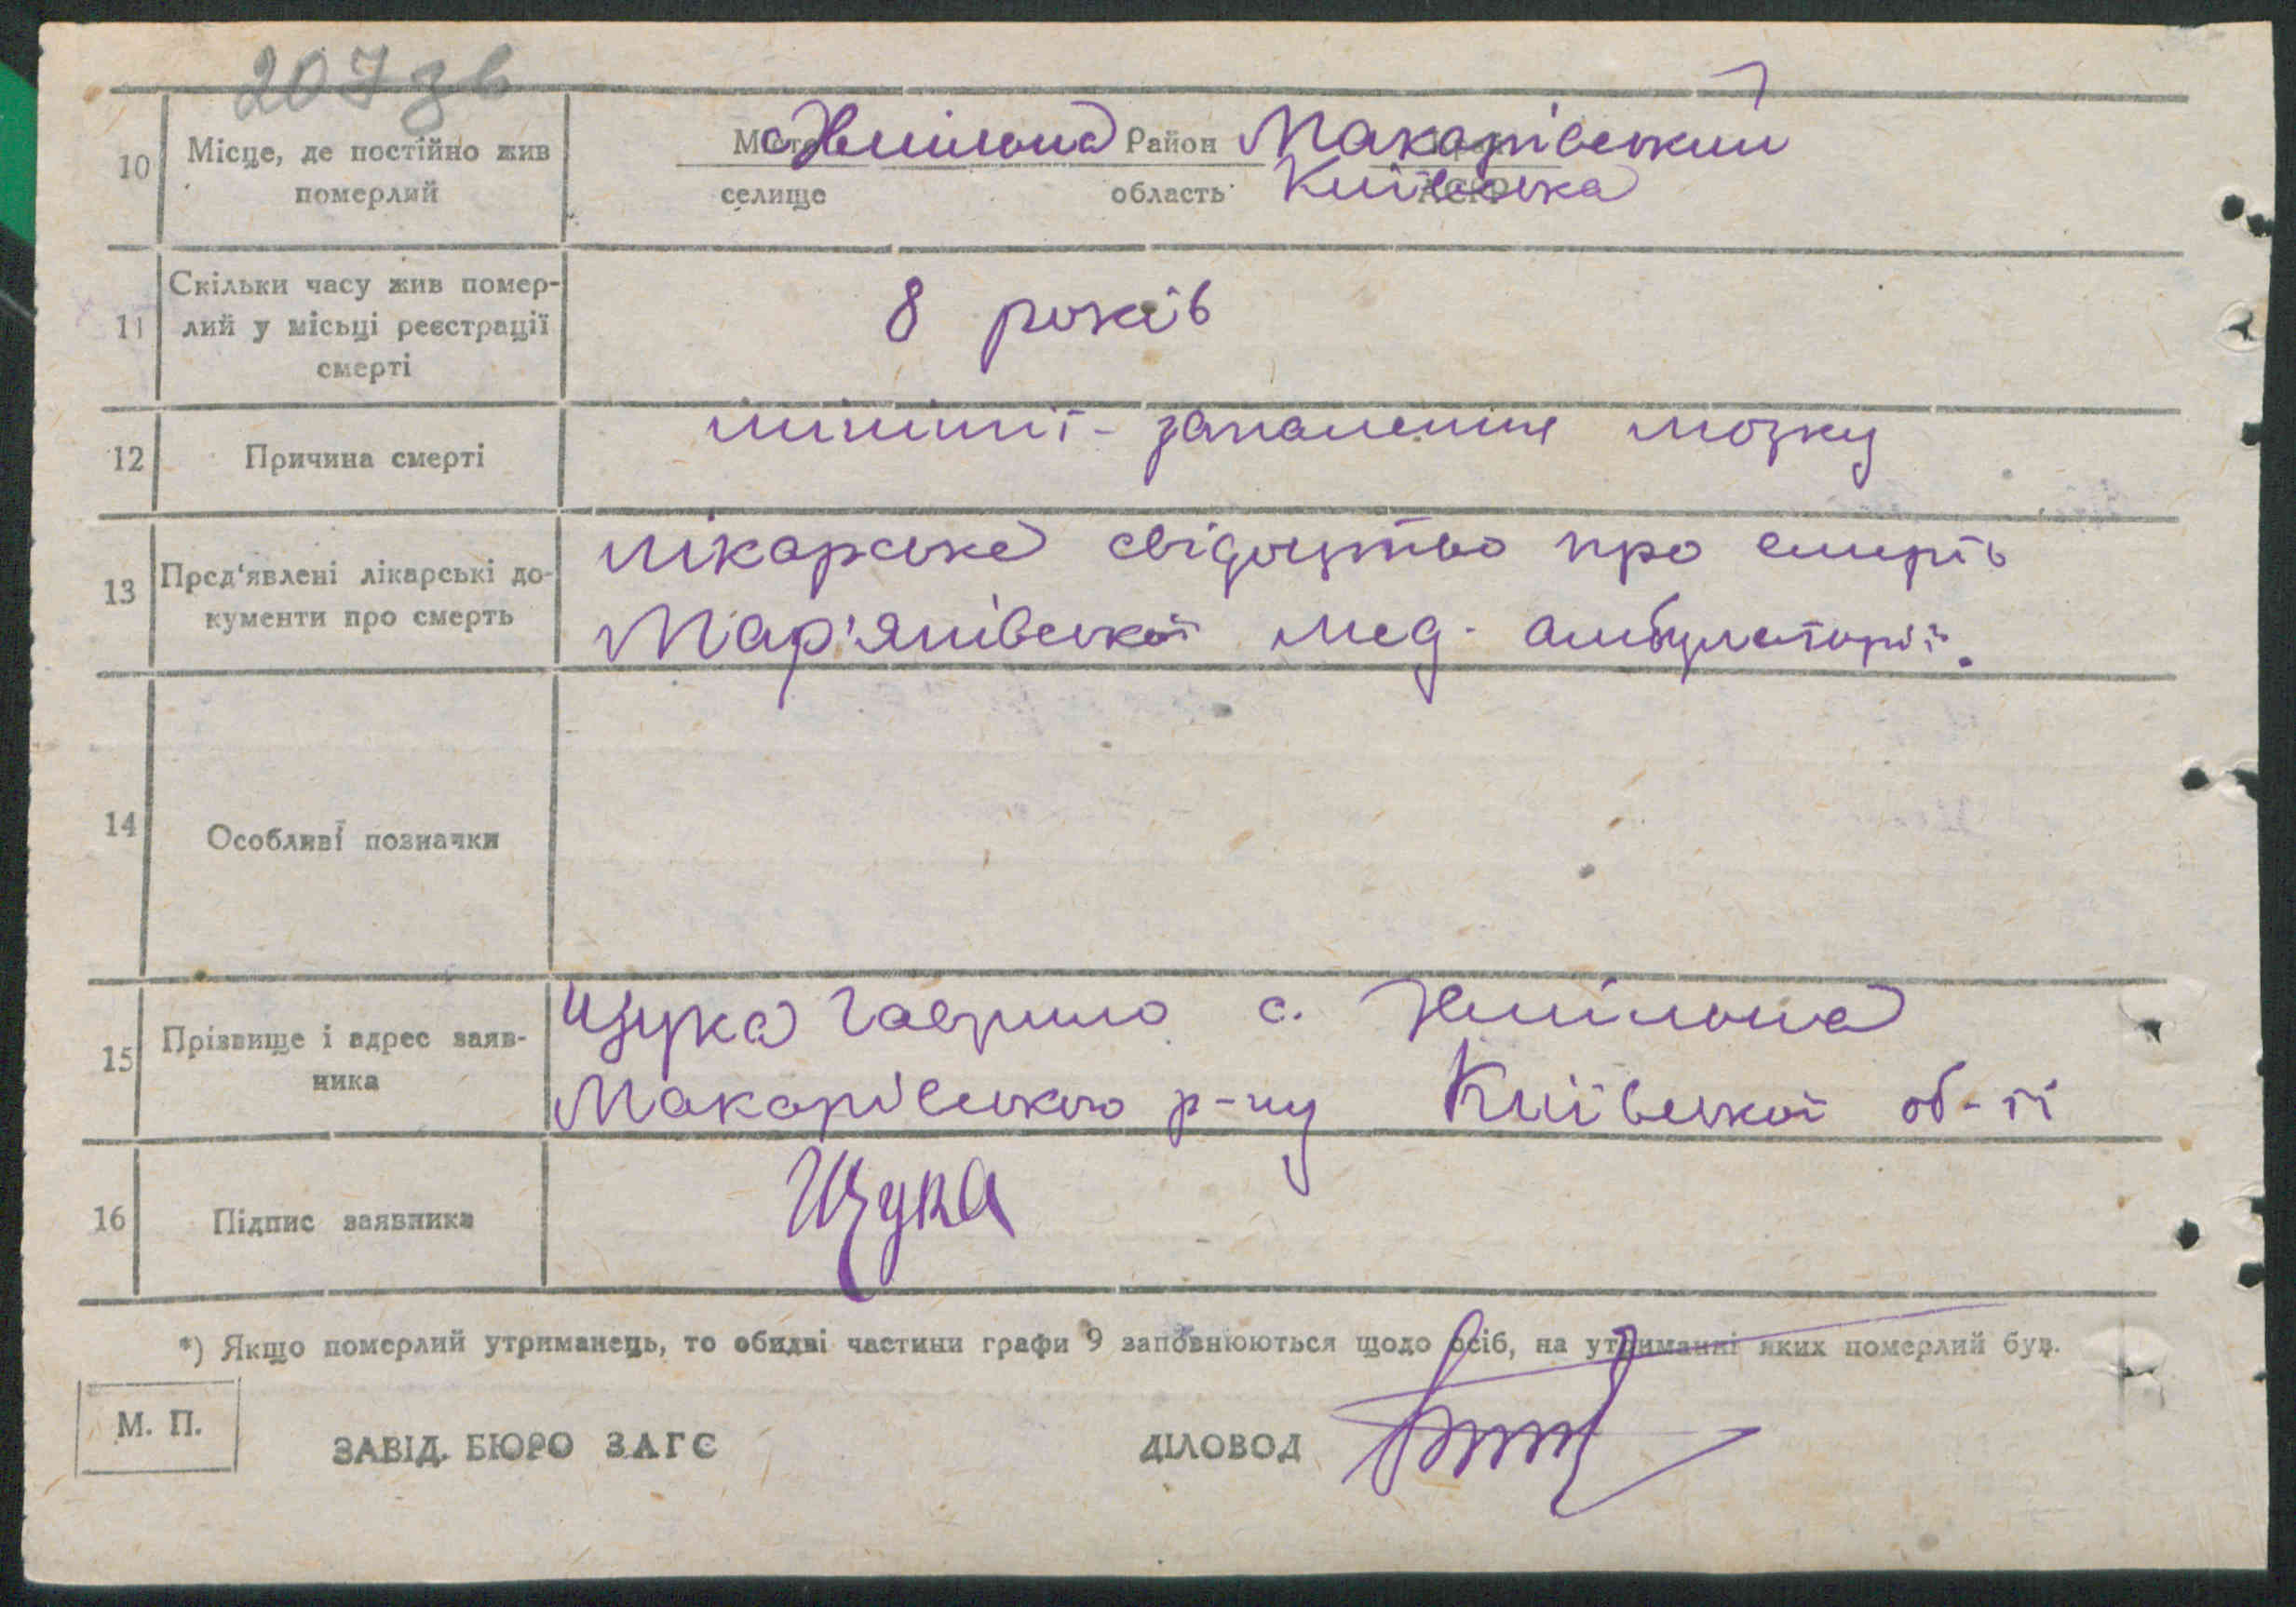 207 зв
10 Місце, де постійно жив померлий
Місто с. Жмільна Район Макарівський
селище область Київська
11 Скільки часу жив помер-
лий у місьці реєстрації
смерті
8 років
12 Причина смерті
запалення мозку
13 Пред'явлені лікарські до-
кументи про смерть
лікарське свідоцтво про смерть
Мар'янівської мед. амбулаторії.
14 Особливі позначки
15 Прізвище і адрес заяв-
ника
Щука Гаврило с. Жмільна
Макарівського р-ну Київської об-ті
16 Підпис заявника
Щука
*) Якщо померлий утриманець, то обидві частини графи 9 заповнюються щодо осіб, на утриманні яких померлий був.
М. П.
ЗАВІД. БЮРО ЗАГС ДІЛОВОД